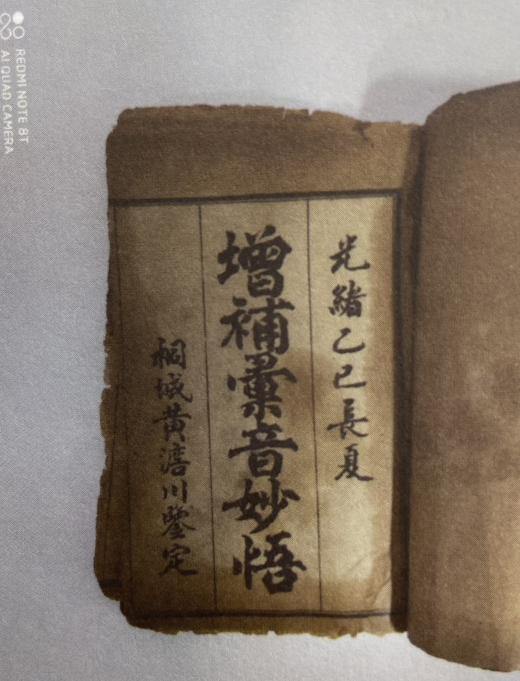 光緒乙巳長夏
增補彙音妙悟
桐城黃澹川鑒定
REDMI NOTE 8T
AI QUAD CAMERA